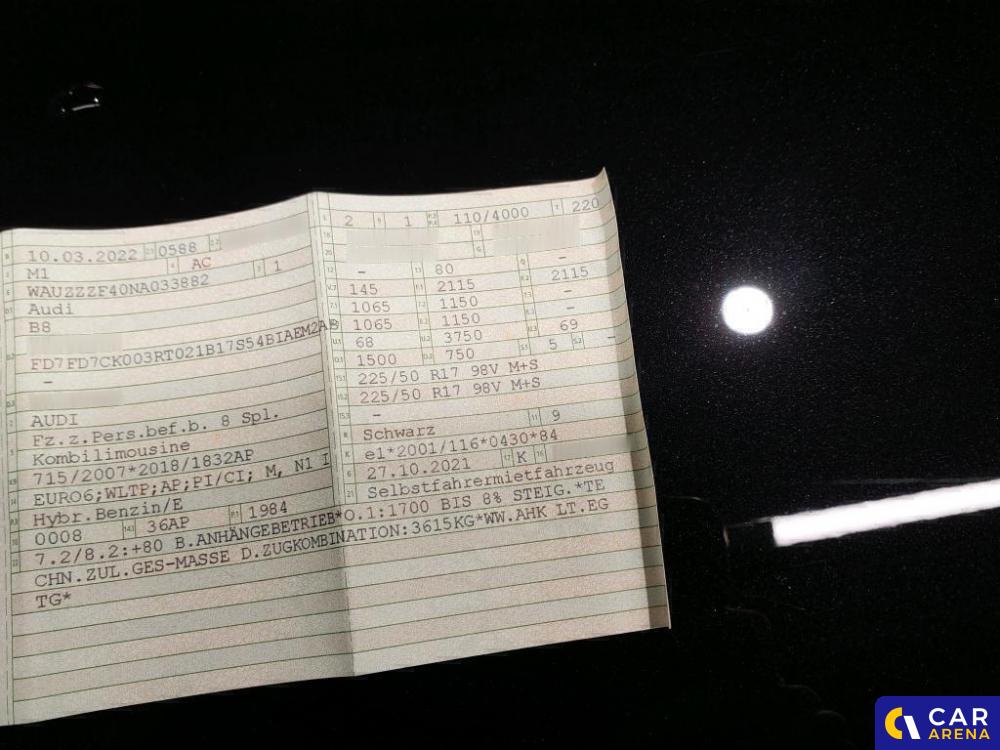 10.03.2022 0588
M1 AC
WAUZZZF40NA033882 1
Audi
B8
FD7FD7CK003RT021B17S54BIAEM2AB
–
AUDI
Fz.z.Pers.bef.b. 8 Spl.
Kombilimousine
715/2007*2018/1832AP
EURO6;WLTP;AP;PI/CI; M, N1 I
Hybr.Benzin/E
0008 36AP 1984
2 1 110/4000 220
– 80 –
145 2115 2115
1065 1150 –
1065 1150 –
68 3750 69
1500 750 5 –
225/50 R17 98V M+S
225/50 R17 98V M+S
–
Schwarz 9
e1*2001/116*0430*84
27.10.2021 K
Selbstfahrermietfahrzeug
7.2/8.2:+80 B.ANHÄNGEBETRIEB*O.1:1700 BIS 8% STEIG.*TE
CHN.ZUL.GES-MASSE D.ZUGKOMBINATION:3615KG*WW.AHK LT.EG
TG*
CAR
ARENA